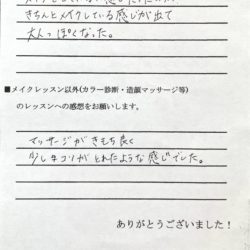 きちんとメイクしている感じが出て
大人っぽくなった。
■メイクレッスン以外(カラー診断・造顔マッサージ等)
のレッスンへの感想をお願いします。
マッサージがきもち良く
少しキコリがとれたような感じでした。
ありがとうございました！